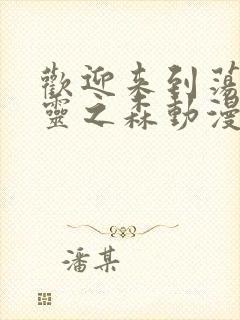 歡迎来到蕩
靈之森動漫
潘某